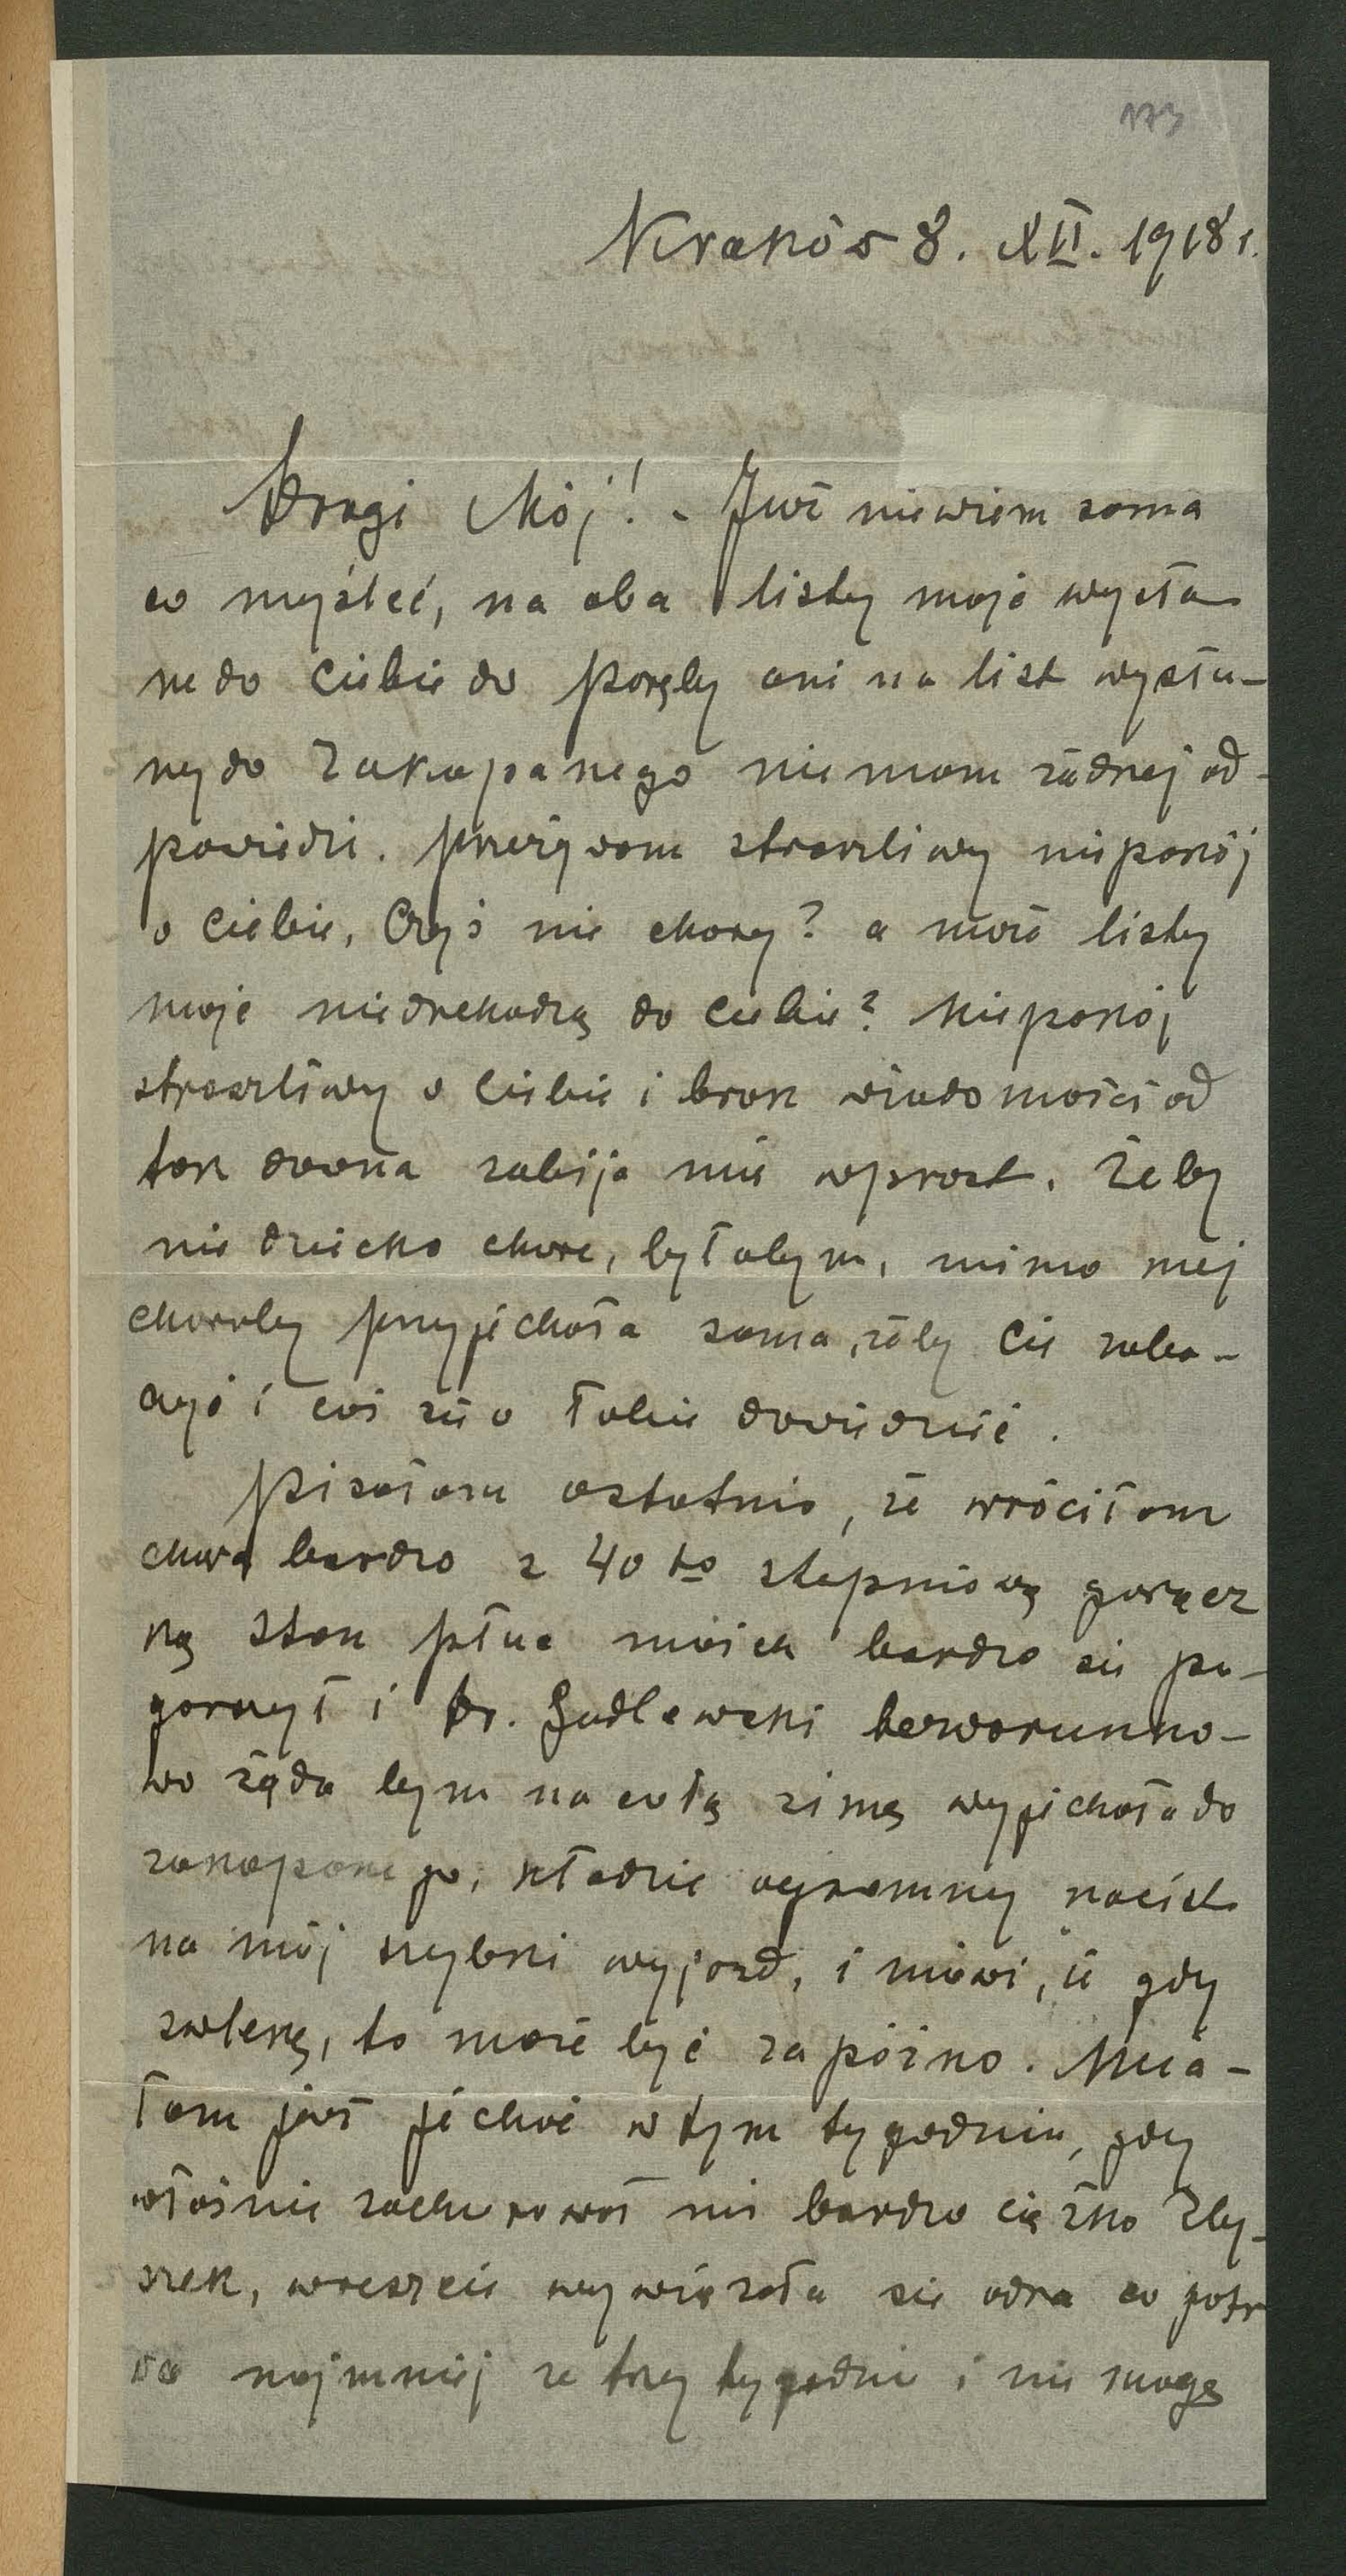 173
Kraków 8. XII. 1918 r.
Drogi Mój! - Już niewiem sama
co myśleć, na oba listy moje wysła
ne do Ciebie do Poręby ani na list wysła-
ny do Zakopanego nie mam żadnej od-
powiedzi. Przeżywam straszliwy niepokój
o Ciebie, Czyś nie chory? a może listy
moje niedochodzą do Ciebie? Niepokój
straszliwy o Ciebie i brak wiadomości od
tak dawna zabija mię wprost. Żeby
nie dziecko chore, byłabym, mimo mej
choroby przyjechała sama, żeby Cię zoba-
czyć i coś się o Tobie dowiedzieć.
Pisałam ostatnio, że wróciłam
chora bardzo z 40 to stopniową gorącz
ką stan płuc moich bardzo się po-
gorszył i Dr. Godlewski bezwarunko-
wo żąda bym na całą zimę wyjechała do
zakopanego, kładzie ogromny nacisk
na mój szybki wyjazd, i mówi, iż gdy
zwlekę, to może być za późno. Mia-
łam już jechać w tym tygodniu, gdy
właśnie zachorował mi bardzo ciężko Zby-
szek, wreszcie wywiązała się odra co potr
wa najmniej ze trzy tygodnie i nie mogę